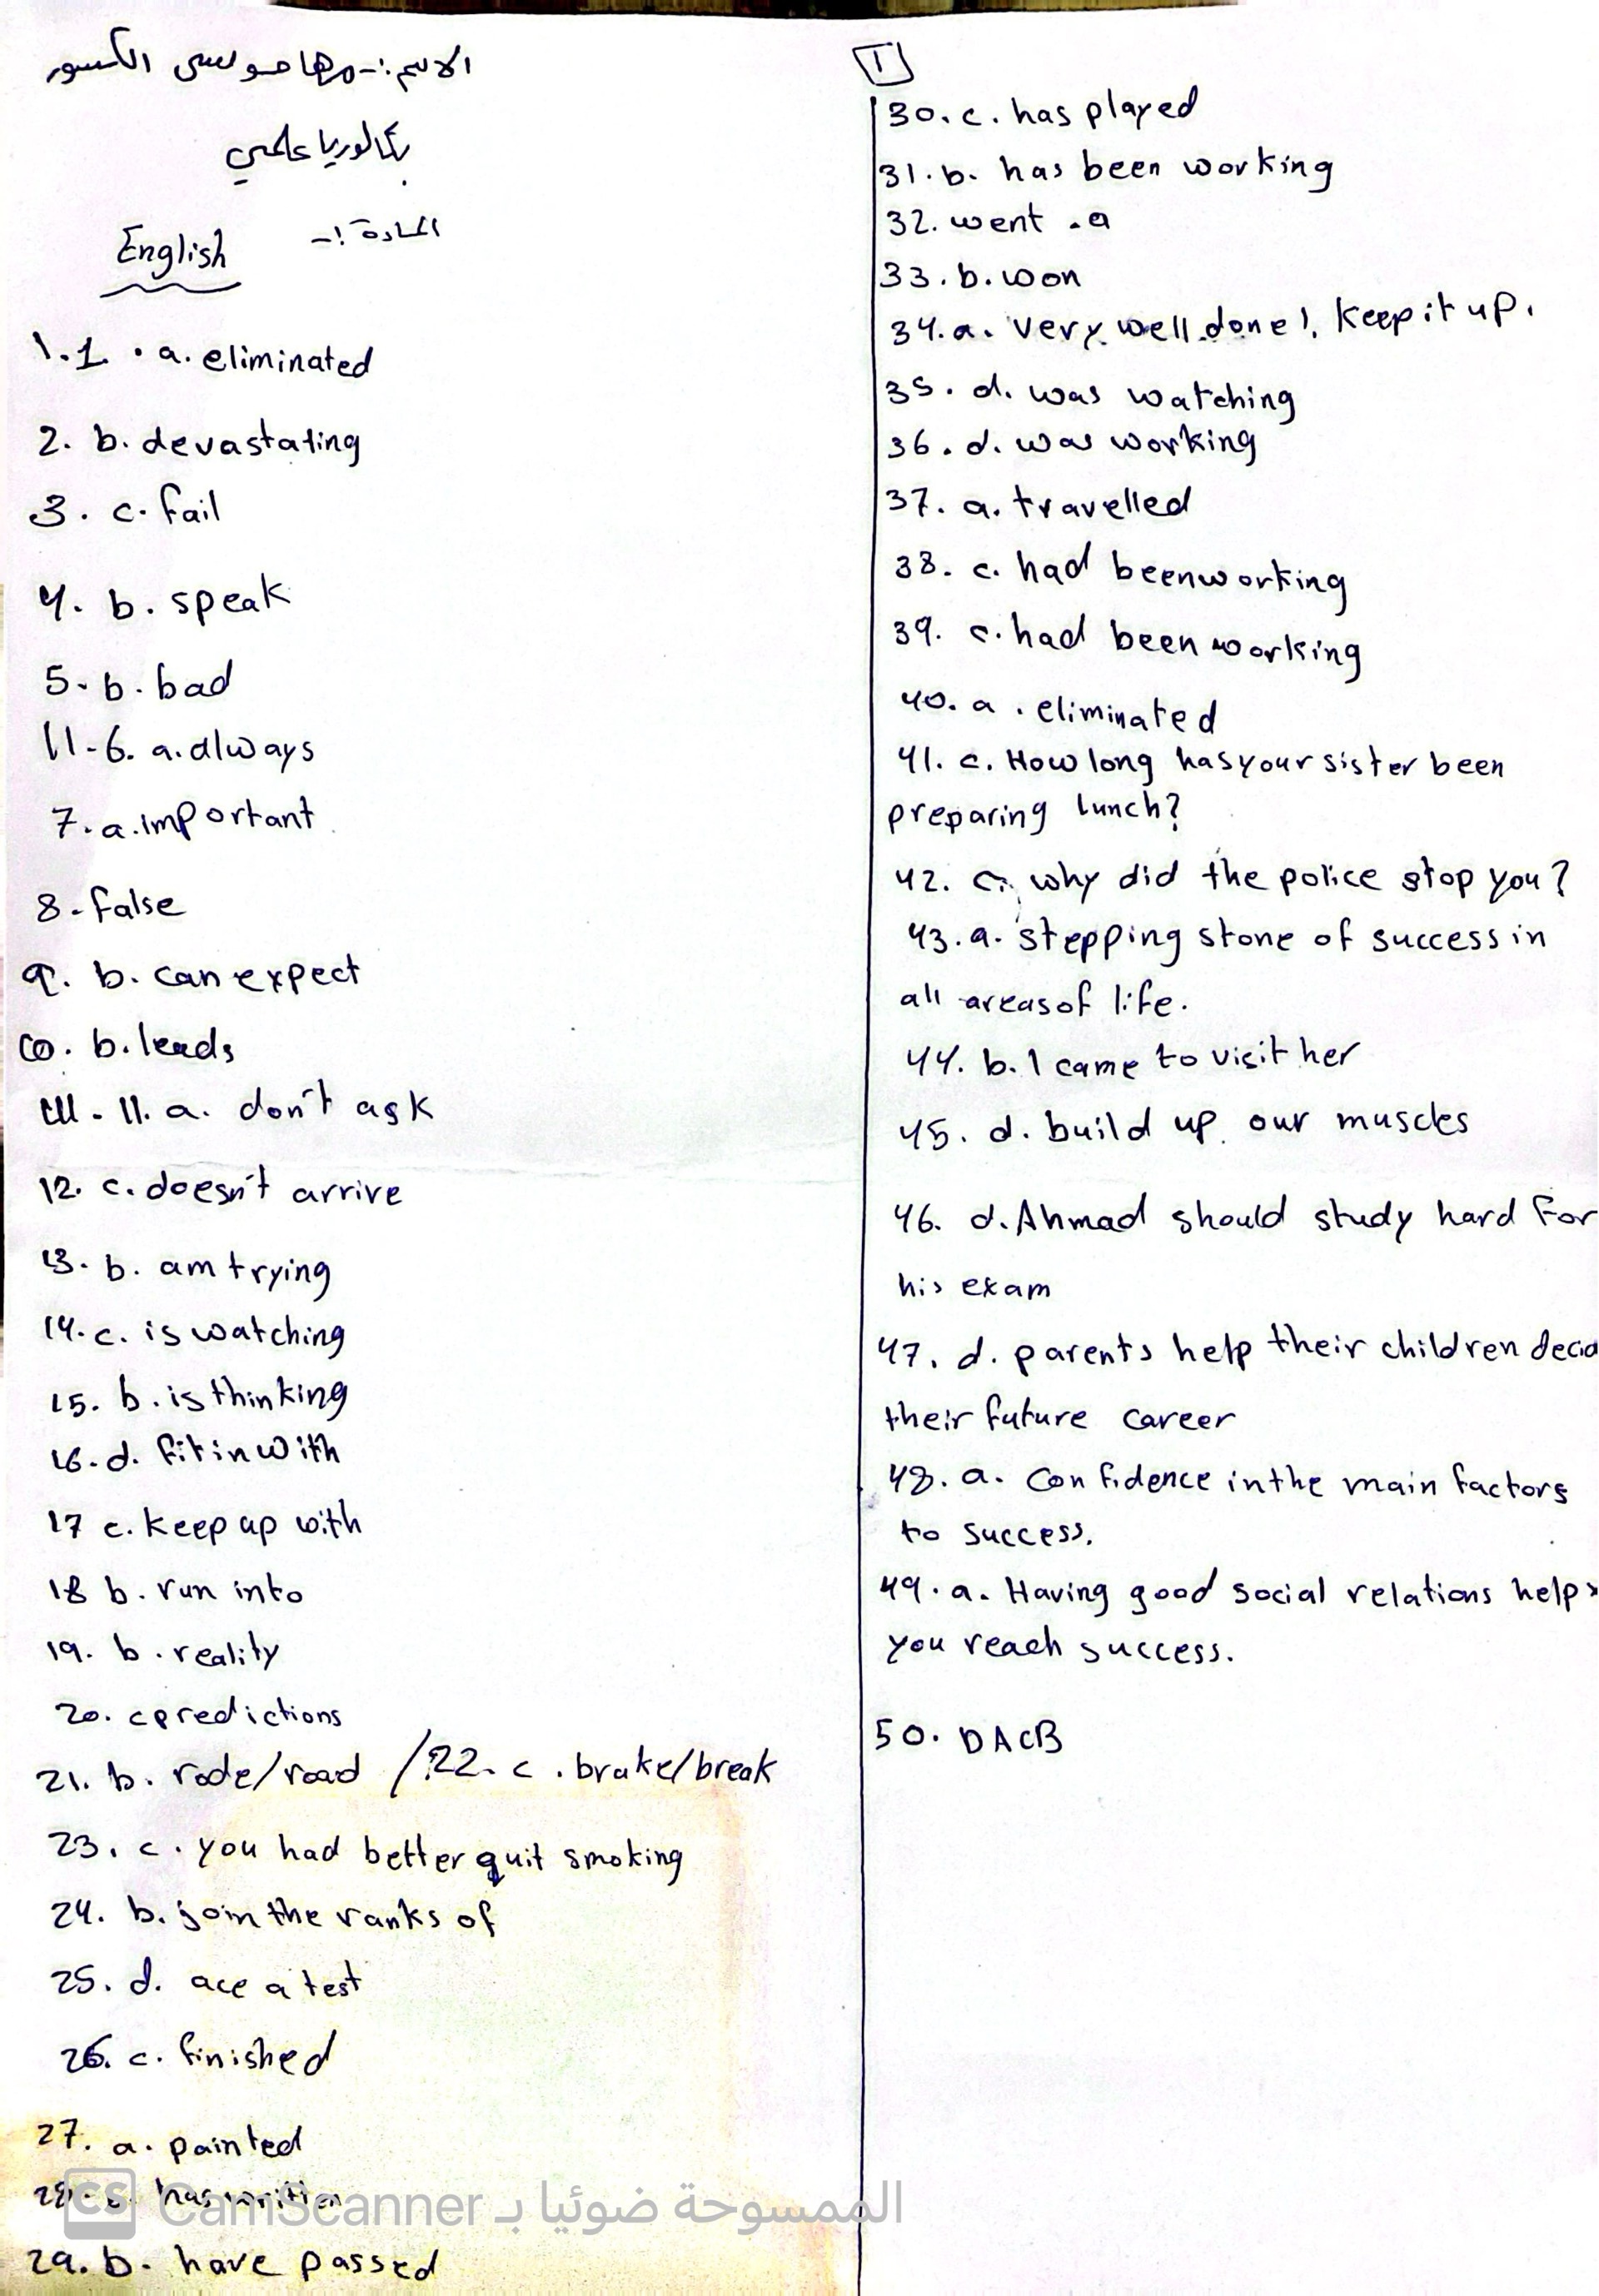 الاسم:- مها موسى الكسور
بكالوريا علمي
المادة:- English
1.1. a. eliminated
2. b. devastating
3. c. fail
4. b. speak
5. b. bad
11-6. a. always
7. a. important
8. false
9. b. can expect
10. b. leads
111-11. a. don't ask
12. c. doesn't arrive
13. b. am trying
14. c. is watching
15. b. is thinking
16. d. fit in with
17 c. keep up with
18 b. run into
19. b. reality
20. c predictions
21. b. rode/road /22. c. brake/break
23. c. you had better quit smoking
24. b. join the ranks of
25. d. ace a test
26. c. finished
27. a. painted
28. has written
29. b. have passed
1
30. c. has played
31. b. has been working
32. went .a
33. b. won
34. a. very well done!. Keep it up.
35. d. was watching
36. d. was working
37. a. travelled
38. c. had been working
39. c. had been working
40. a. eliminated
41. c. How long has your sister been
preparing lunch?
42. c. why did the police stop you?
43. a. stepping stone of success in
all areas of life.
44. b. I came to visit her
45. d. build up our muscles
46. d. Ahmad should study hard for
his exam
47. d. parents help their children decid
their future career
48. a. Confidence in the main factors
to success.
49. a. Having good social relations helps
you reach success.
50. DACB
CS CamScanner الممسوحة ضوئيا بـ